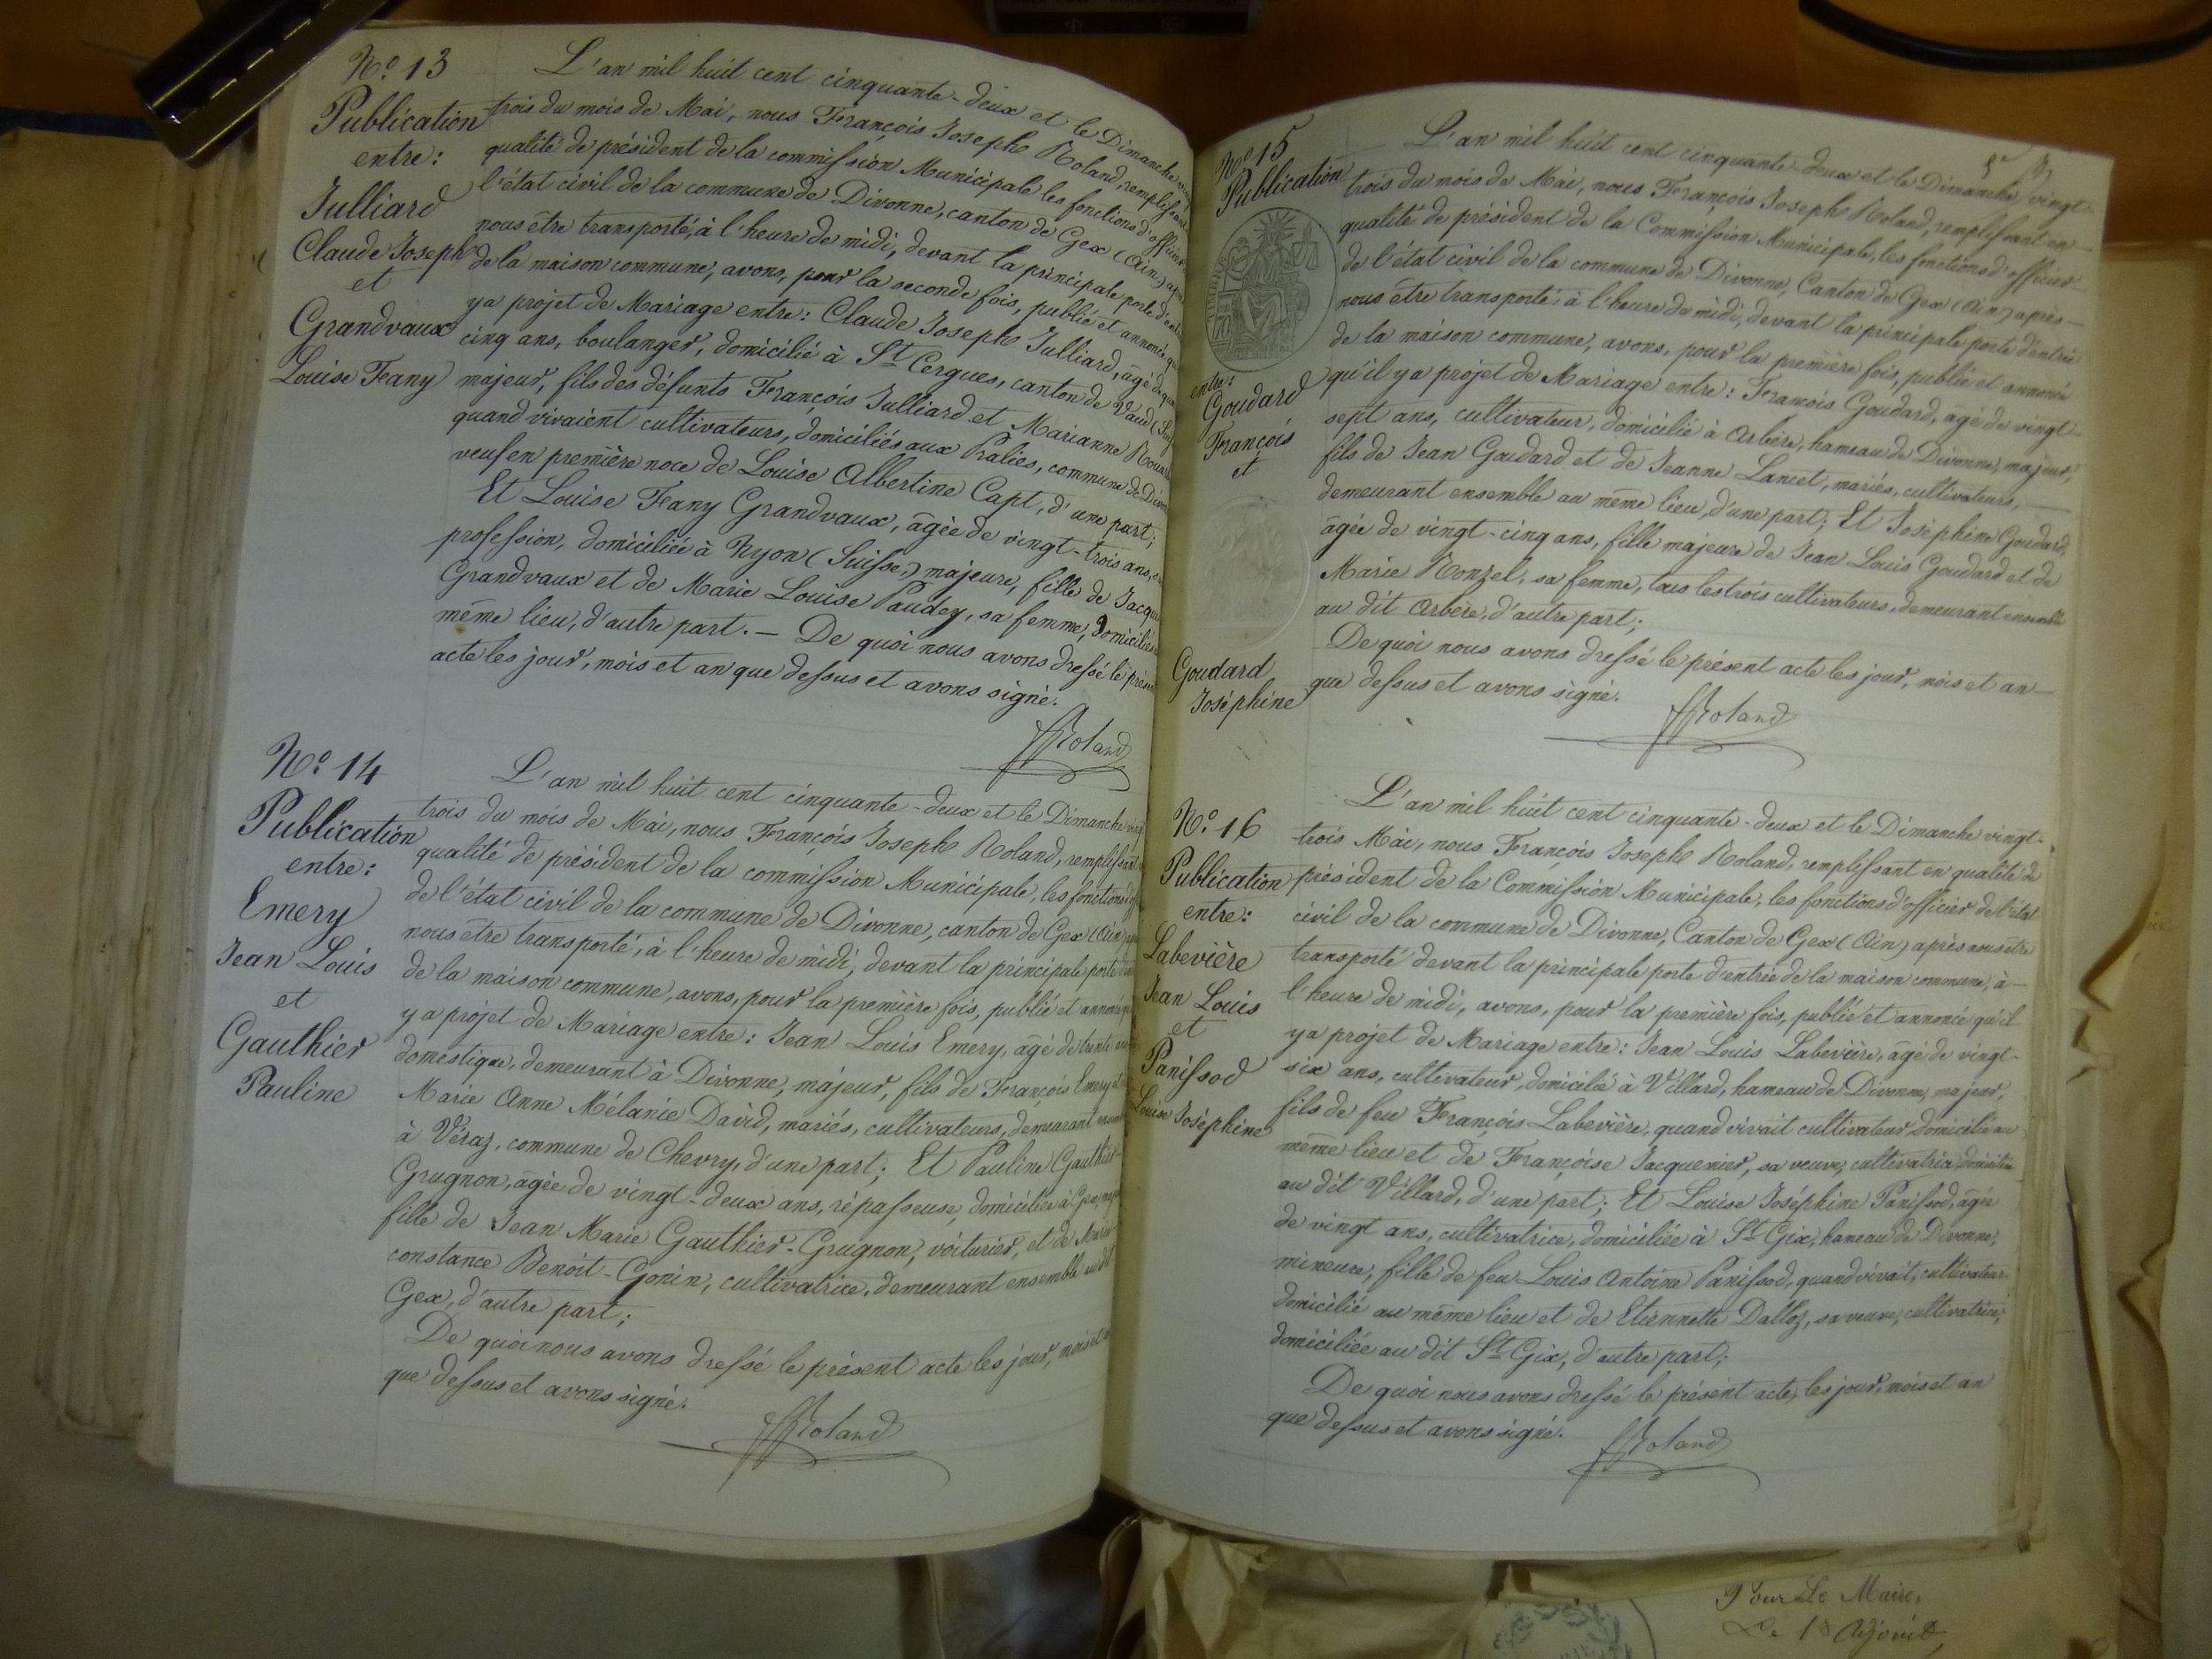 Nº 13
Publication
entre:
Julliard
Claude Joseph
et
Grandvaux
Louise Fany
L'an mil huit cent cinquante-deux et le Dimanche
trois du mois de Mai, nous François Joseph Roland, remplissant
qualité de président de la commission Municipale les fonctions d'officier
l'état civil de la commune de Divonne, canton de Gex (Ain)
nous être transporté, à l'heure de midi, devant la principale porte
de la maison commune, avons, pour la seconde fois, publié et annoncé
y a projet de Mariage entre: Claude Joseph Julliard, âgé de
cinq ans, boulanger, domicilié à St Cergues, canton de Vaud
majeur, fils des défunts François Julliard et Marianne
quand vivaient cultivateurs, domiciliés aux Pralies, commune de
veuf en première noce de Louise Albertine Capt, d'une part;
Et Louise Fany Grandvaux, âgée de vingt-trois ans,
profession, domiciliée à Nyon (Suisse,) majeure, fille de
Grandvaux et de Marie Louise Paudey, sa femme, domiciliés
même lieu, d'autre part. — De quoi nous avons dressé le
acte les jour, mois et an que dessus et avons signé.
FJRoland
Nº 14
Publication
entre:
Emery
Jean Louis
et
Gauthier
Pauline
L'an mil huit cent cinquante-deux et le Dimanche
trois du mois de Mai, nous François Joseph Roland, remplissant
qualité de président de la commission Municipale, les fonctions
de l'état civil de la commune de Divonne, canton de Gex (Ain)
nous être transporté, à l'heure de midi, devant la principale porte
de la maison commune, avons, pour la première fois, publié et
y a projet de Mariage entre: Jean Louis Emery, âgé de trente
domestique, demeurant à Divonne, majeur, fils de François Emery
Marie Anne Mélanie David, mariés, cultivateurs, demeurant
à Véraz, commune de Chevry, d'une part; Et Pauline Gauthier
Grugnon, âgée de vingt-deux ans, répasseuse, domiciliée à Gex,
fille de Jean Marie Gauthier-Grugnon, voiturier, et de
constance Benoit-Gonin, cultivatrice, demeurant ensemble
Gex, d'autre part;
De quoi nous avons dressé le présent acte les jour, mois
que dessus et avons signé.
FJRoland
Nº 15
Publication
entre:
Goudard
François
et
Goudard
Joséphine
L'an mil huit cent cinquante-deux et le Dimanche vingt-
trois du mois de Mai, nous François Joseph Roland, remplissant en
qualité de président de la Commission Municipale, les fonctions d'officier
de l'état civil de la commune de Divonne, Canton de Gex (Ain) après
nous être transporté, à l'heure de midi, devant la principale porte d'entrée
de la maison commune, avons, pour la première fois, publié et annoncé
qu'il y a projet de Mariage entre: François Goudard, agé de vingt-
sept ans, cultivateur, domicilié à Arbère, hameau de Divonne, majeur,
fils de Jean Goudard et de Jeanne Lancet, mariés, cultivateurs,
demeurant ensemble au même lieu, d'une part; Et Joséphine Goudard,
âgée de vingt-cinq ans, fille majeure de Jean Louis Goudard et de
Marie Ronzel, sa femme, tous les trois cultivateurs, demeurant ensemble
au dit Arbère, d'autre part;
De quoi nous avons dressé le présent acte les jour, mois et an
que dessus et avons signé.
FJRoland
Nº 16
Publication
entre:
Labevière
Jean Louis
et
Panissod
Louise Joséphine
L'an mil huit cent cinquante-deux et le Dimanche vingt-
trois Mai, nous François Joseph Roland, remplissant en qualité de
président de la Commission Municipale, les fonctions d'officier de l'état
civil de la commune de Divonne, Canton de Gex (Ain) après nous être
transporté devant la principale porte d'entrée de la maison commune, à
l'heure de midi, avons, pour la première fois, publié et annoncé qu'il
y a projet de Mariage entre: Jean Louis Labevière, âgé de vingt-
six ans, cultivateur, domicilié à Villard, hameau de Divonne, majeur,
fils de feu François Labevière, quand vivait cultivateur, domicilié au
même lieu et de Françoise Jacquenier, sa veuve, cultivatrice, domiciliée
au dit Villard, d'une part; Et Louise Joséphine Panissod, âgée
de vingt ans, cultivatrice, domiciliée à St Gix, hameau de Divonne,
mineure, fille de feu Louis Antoine Panissod, quand vivait, cultivateur
domicilié au même lieu et de Etiennette Dalloz, sa veuve, cultivatrice,
domiciliée au dit St Gix, d'autre part;
De quoi nous avons dressé le présent acte, les jour, mois et an
que dessus et avons signé.
FJRoland
Pour Le Maire,